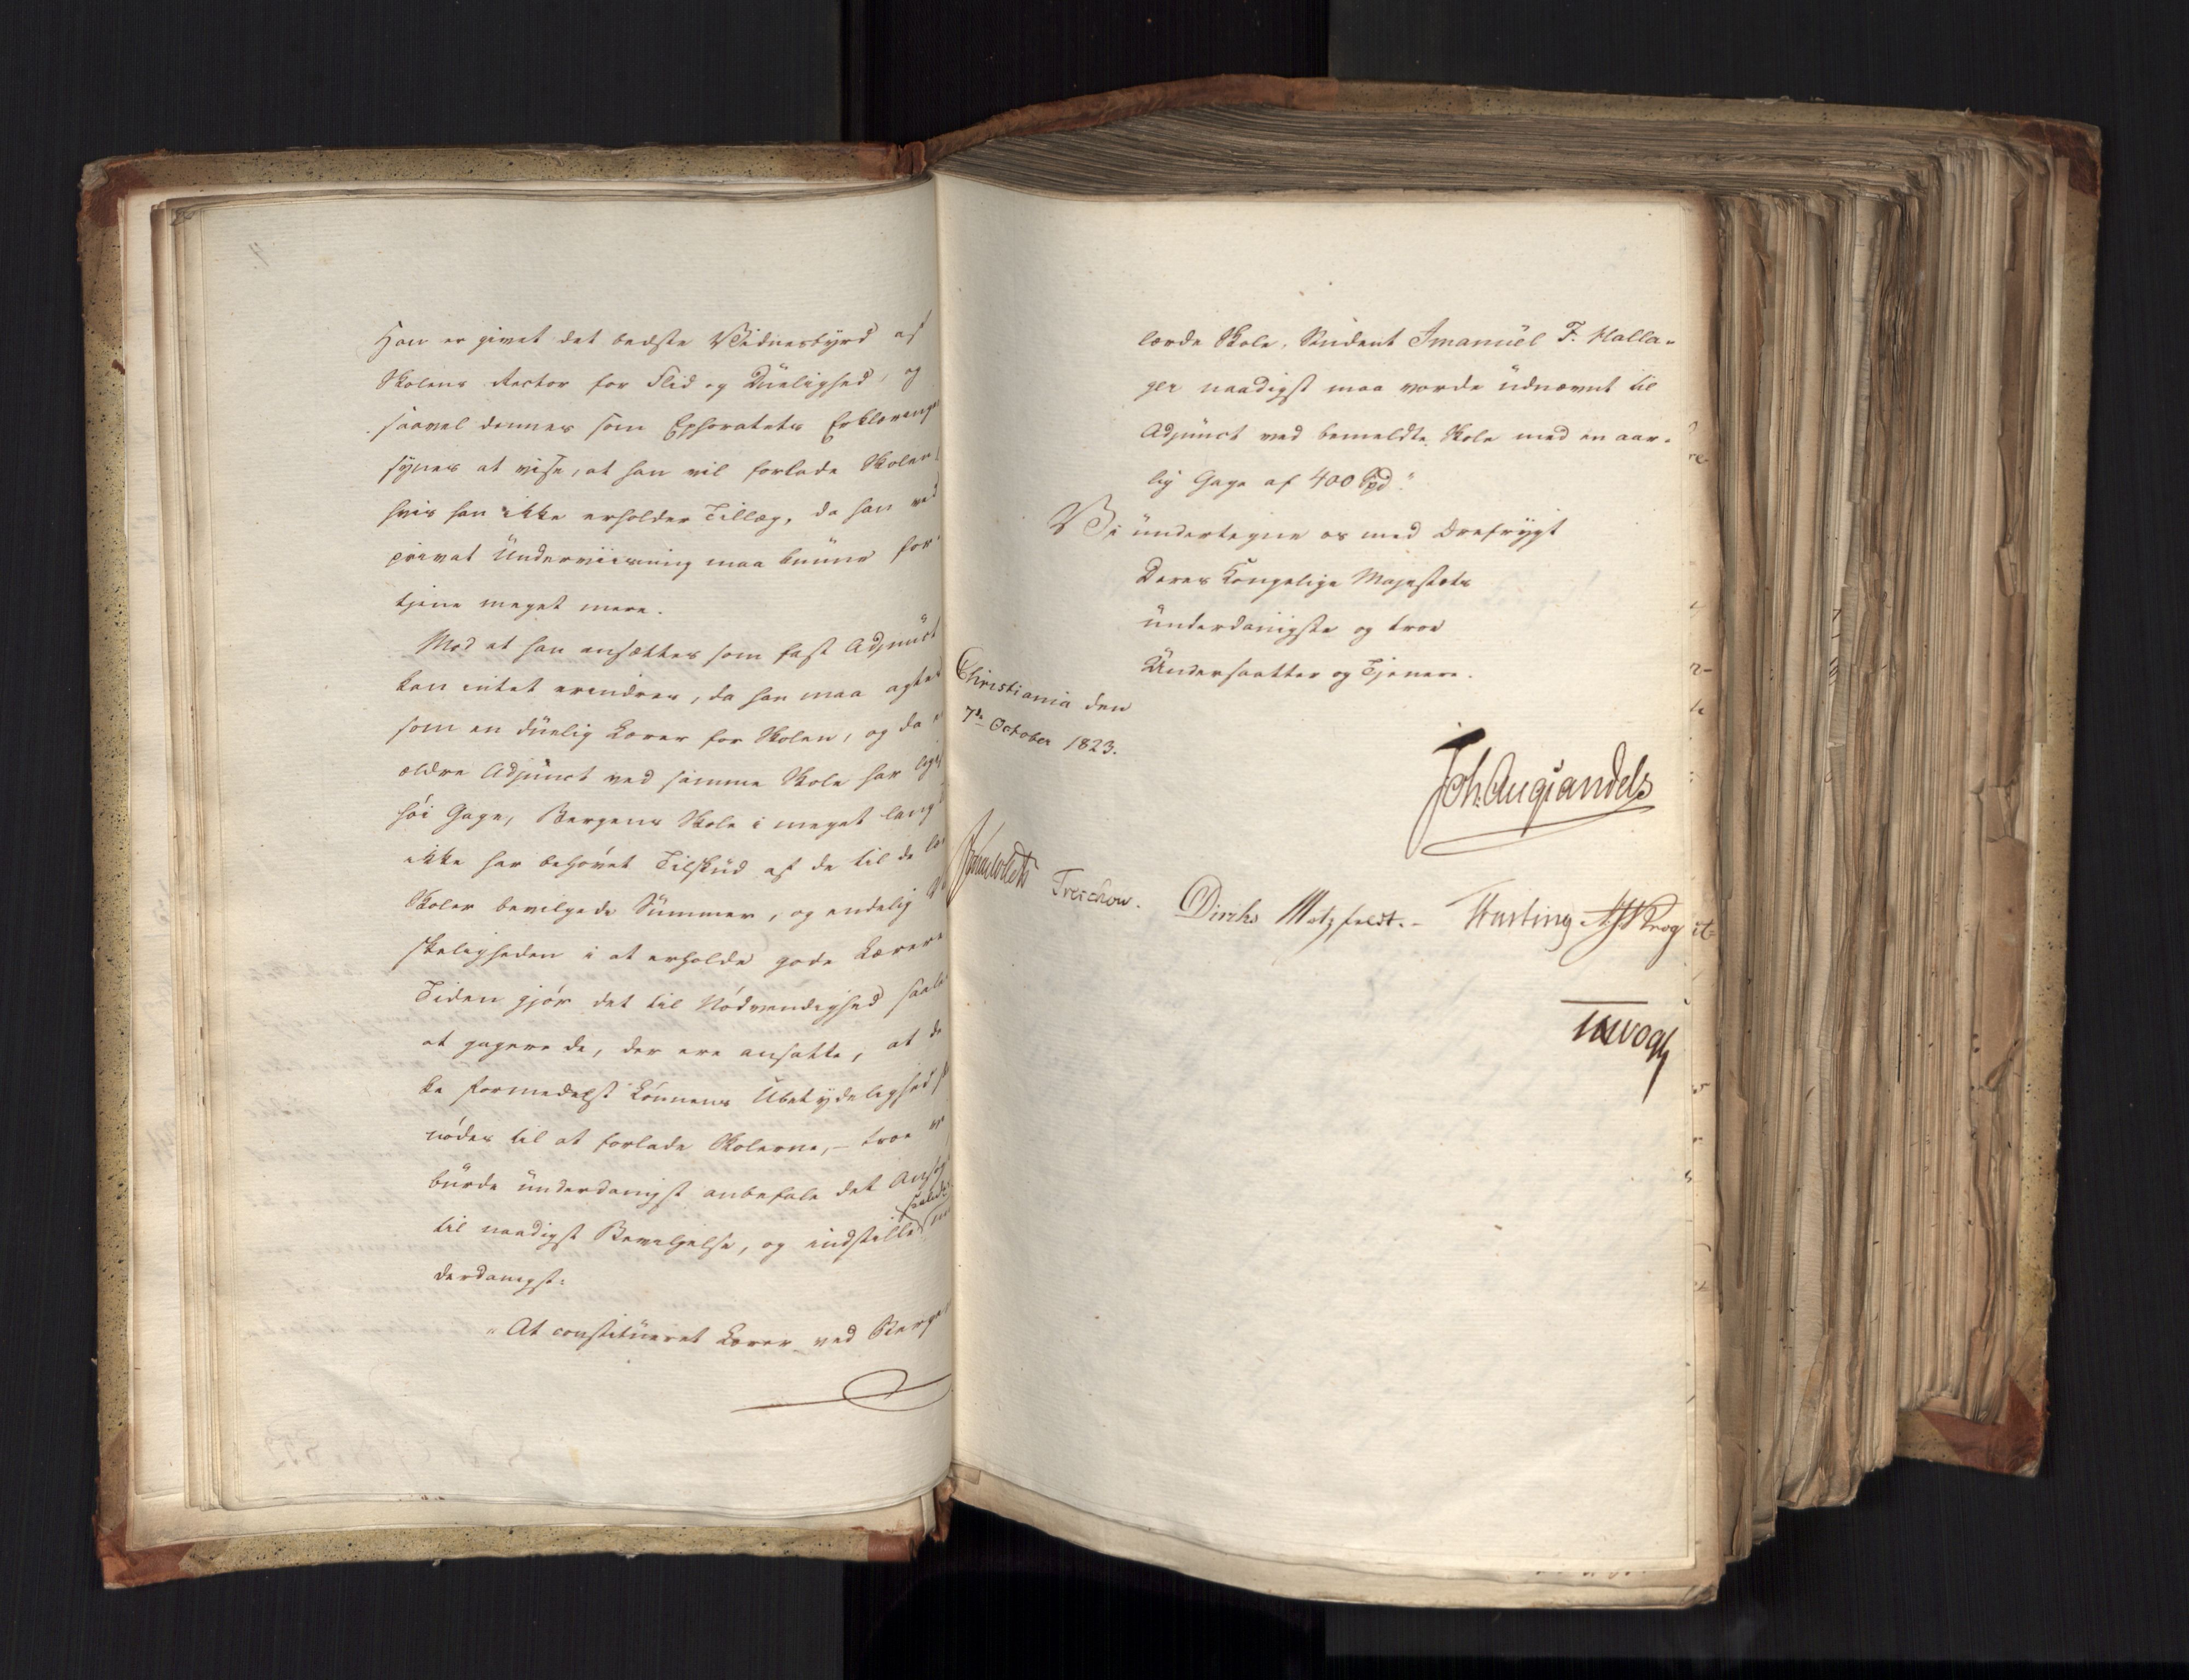 Han er givet det bedste Vidnesbyrd af
Skolens Rector for Flid og Duelighed, og
saavel dennes som Ephoratets Erklæringer
synes at vise, at han vil forlade Skolen
hvis han ikke erholder Tillæg, da han ved
privat Underviisning maa kunne for
tjene meget mere.
Mod at han ansættes som fast Adjunct
kan intet erindres, da han maa agtes
som en duelig Lærer for Skolen, og da
ældre Adjunct ved samme Skole har lige
høi Gage, Bergens Skole i meget lang
ikke har behøvet Tilskud af de til de
Skoler bevilgede Summer, og endelig
skeligheden i at erholde gode Lærere
Tiden gjør det til Nødvendighed saale
at gagere de, der ere ansatte, at de
ke formedelst Lønnens Ubetydelighed
nødes til at forlade Skolerne, – troe vi
burde underdanigst anbefale det Ansøgte
til naadigst Bevilgelse, og indstille saaledes
derdanigst:
"At constitueret Lærer ved Bergens
lærde Skole, Student Imanuel F. Halla-
ger naadigst maa vorde udnævnt til
Adjunct ved bemeldte Skole med en aar-
lig Gage af 400 Spd."
Vi undertegne os med Ærefrygt
Deres Kongelige Majestæts
underdanigste og troe
Undersaatter og Tjenere.
Christiania den
7de October 1823.
Joh. Aug. Sandels
Treschow.
Diriks Motzfeldt. Fasting Krog
Vogt